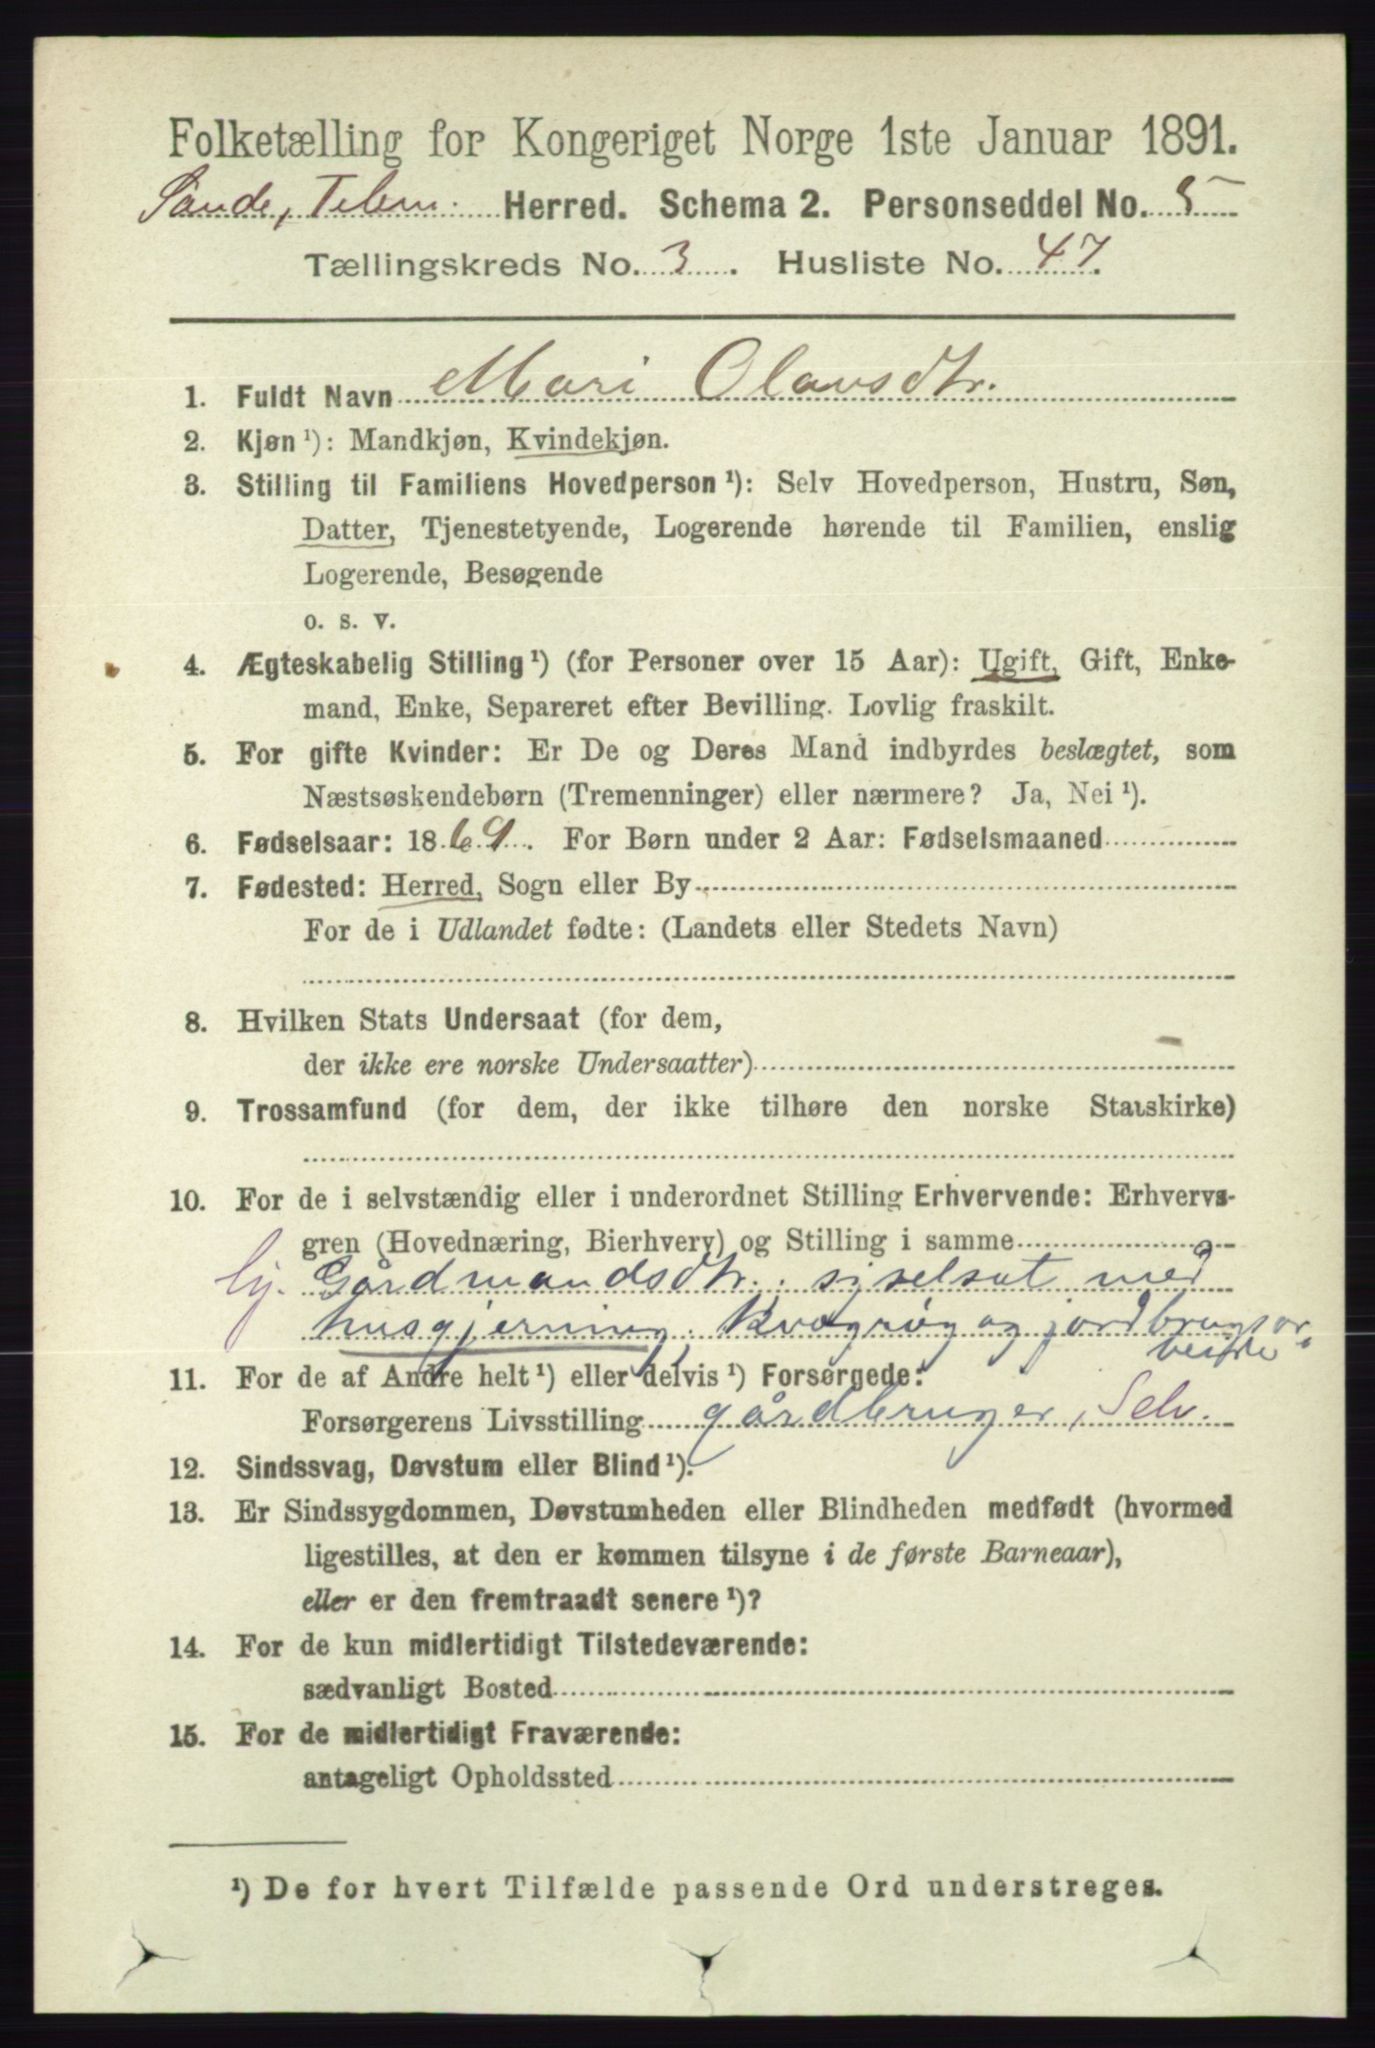 Folketælling for Kongeriget Norge 1ste Januar 1891.
Sande, Telem. Herred. Schema 2. Personseddel No. 5
Tællingskreds No. 3. Husliste No. 47.
1. Fuldt Navn Mari Olavsdtr.
2. Kjøn¹): Mandkjøn, Kvindekjøn.
3. Stilling til Familiens Hovedperson¹): Selv Hovedperson, Hustru, Søn,
Datter, Tjenestetyende, Logerende hørende til Familien, enslig
Logerende, Besøgende
o. s. v.
4. Ægteskabelig Stilling¹) (for Personer over 15 Aar): Ugift, Gift, Enke-
mand, Enke, Separeret efter Bevilling. Lovlig fraskilt.
5. For gifte Kvinder: Er De og Deres Mand indbyrdes beslægtet, som
Næstsøskendebørn (Tremenninger) eller nærmere? Ja, Nei¹).
6. Fødselsaar: 1869. For Børn under 2 Aar: Fødselsmaaned
7. Fødested: Herred, Sogn eller By
For de i Udlandet fødte: (Landets eller Stedets Navn)
8. Hvilken Stats Undersaat (for dem,
der ikke ere norske Undersaatter)
9. Trossamfund (for dem, der ikke tilhøre den norske Statskirke)
10. For de i selvstændig eller i underordnet Stilling Erhvervende: Erhvervs-
gren (Hovednæring, Bierhverv) og Stilling i samme
Gårdmandsdtr. syselsat med
husgjerning. Kvægrøg og jordbrugsar
beide
11. For de af Andre helt¹) eller delvis¹) Forsørgede:
Forsørgerens Livsstilling gårdbruger, Selv.
12. Sindssvag, Døvstum eller Blind¹).
13. Er Sindssygdommen, Døvstumheden eller Blindheden medfødt (hvormed
ligestilles, at den er kommen tilsyne i de første Barneaar),
eller er den fremtraadt senere¹)?
14. For de kun midlertidigt Tilstedeværende:
sædvanligt Bosted
15. For de midlertidigt Fraværende:
antageligt Opholdssted
¹) De for hvert Tilfælde passende Ord understreges.